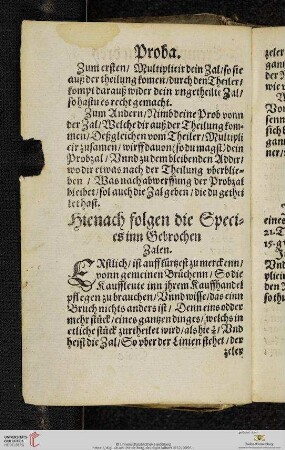 Proba.
Zum ersten / Multiplicir dein Zal / so sie
auß der theilung komen / durch den Theiler /
kompt darauß wider dein ungetheilte Zal /
so hastu es recht gemacht.
Zum Andern / Nimb deine Prob vonn
der Zal / Welche dir auß der Theilung kom-
men / Deßgleichen vom Theiler / Multipli
cir zusamen / wirff davon (so du magst) dein
Probzal / Unnd zu dem bleibenden Addir /
wo dir etwas nach der Theilung vberblie-
ben / Was nach abwerffung der Probzal
bleibet / sol auch die Zal geben / die du getheis
let hast.
Hienach folgen die Speci-
es inn Gebrochen
Zalen.
ERstlich / ist auff kürtzest zu mercken /
vonn gemeinen Brüchenn / So die
Kauffleute inn jhrem Kauffhandel
pflegen zu brauchen / Unnd wisse / das einn
Bruch nichts anders ist / Denn eins odder
mehr stück / eines gantzen dinges / welchs in
etliche stück zurtheilet wird / als hie / Und
heist die Zal / So vber der Linien stehet / der
zeler